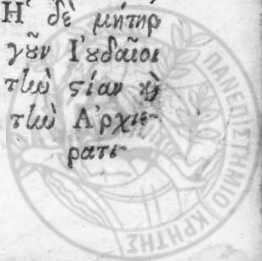 Ἡ δὲ μήτηρ
γοῦν Ἰουδαῖοι
τὴν στίαν καὶ
τὴν Ἀρχιε-
ρατι-
ΠΑΝΕΠΙΣΤΗΜΙΟ ΚΡΗΤΗΣ